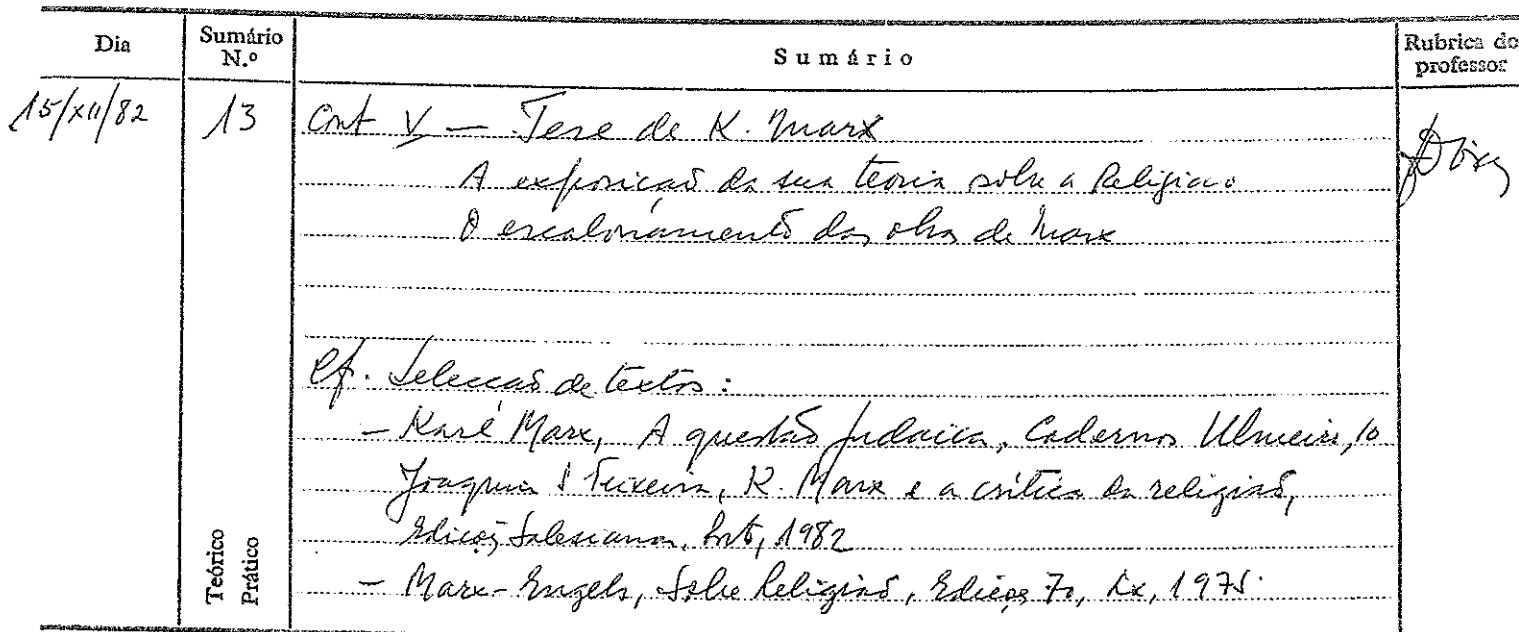 Dia Sumário N.º Sumário Rubrica do professor
15/XII/82 13 Cont V — Tese de K. Marx
A exposição da sua teoria sobre a Religião
O escalonamento das obras de Marx
Cf. Selecção de textos:
- Karl Marx, A questão judaica, Cadernos Ulmeiro, 10
Joaquim S Teixeira, K. Marx e a crítica da religião,
Edições Salesianas, Porto, 1982
- Marx-Engels, Sobre Religião, Edições 70, Lx, 1975.
Teórico
Prático